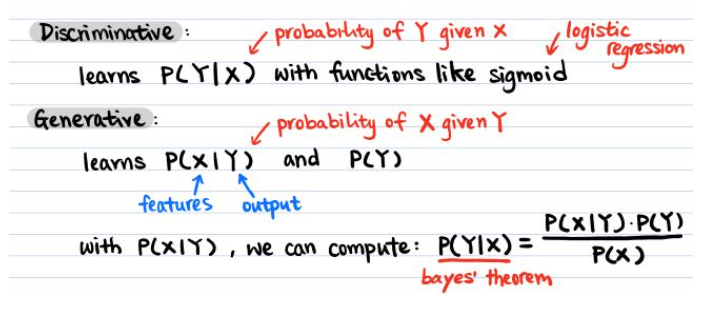 Discriminative :
probability of Y given X
logistic regression
learns P(Y|X) with functions like sigmoid
Generative :
probability of X given Y
learns P(X|Y) and P(Y)
features output
with P(X|Y) , we can compute : P(Y|X) = P(X|Y)·P(Y) / P(X)
bayes' theorem